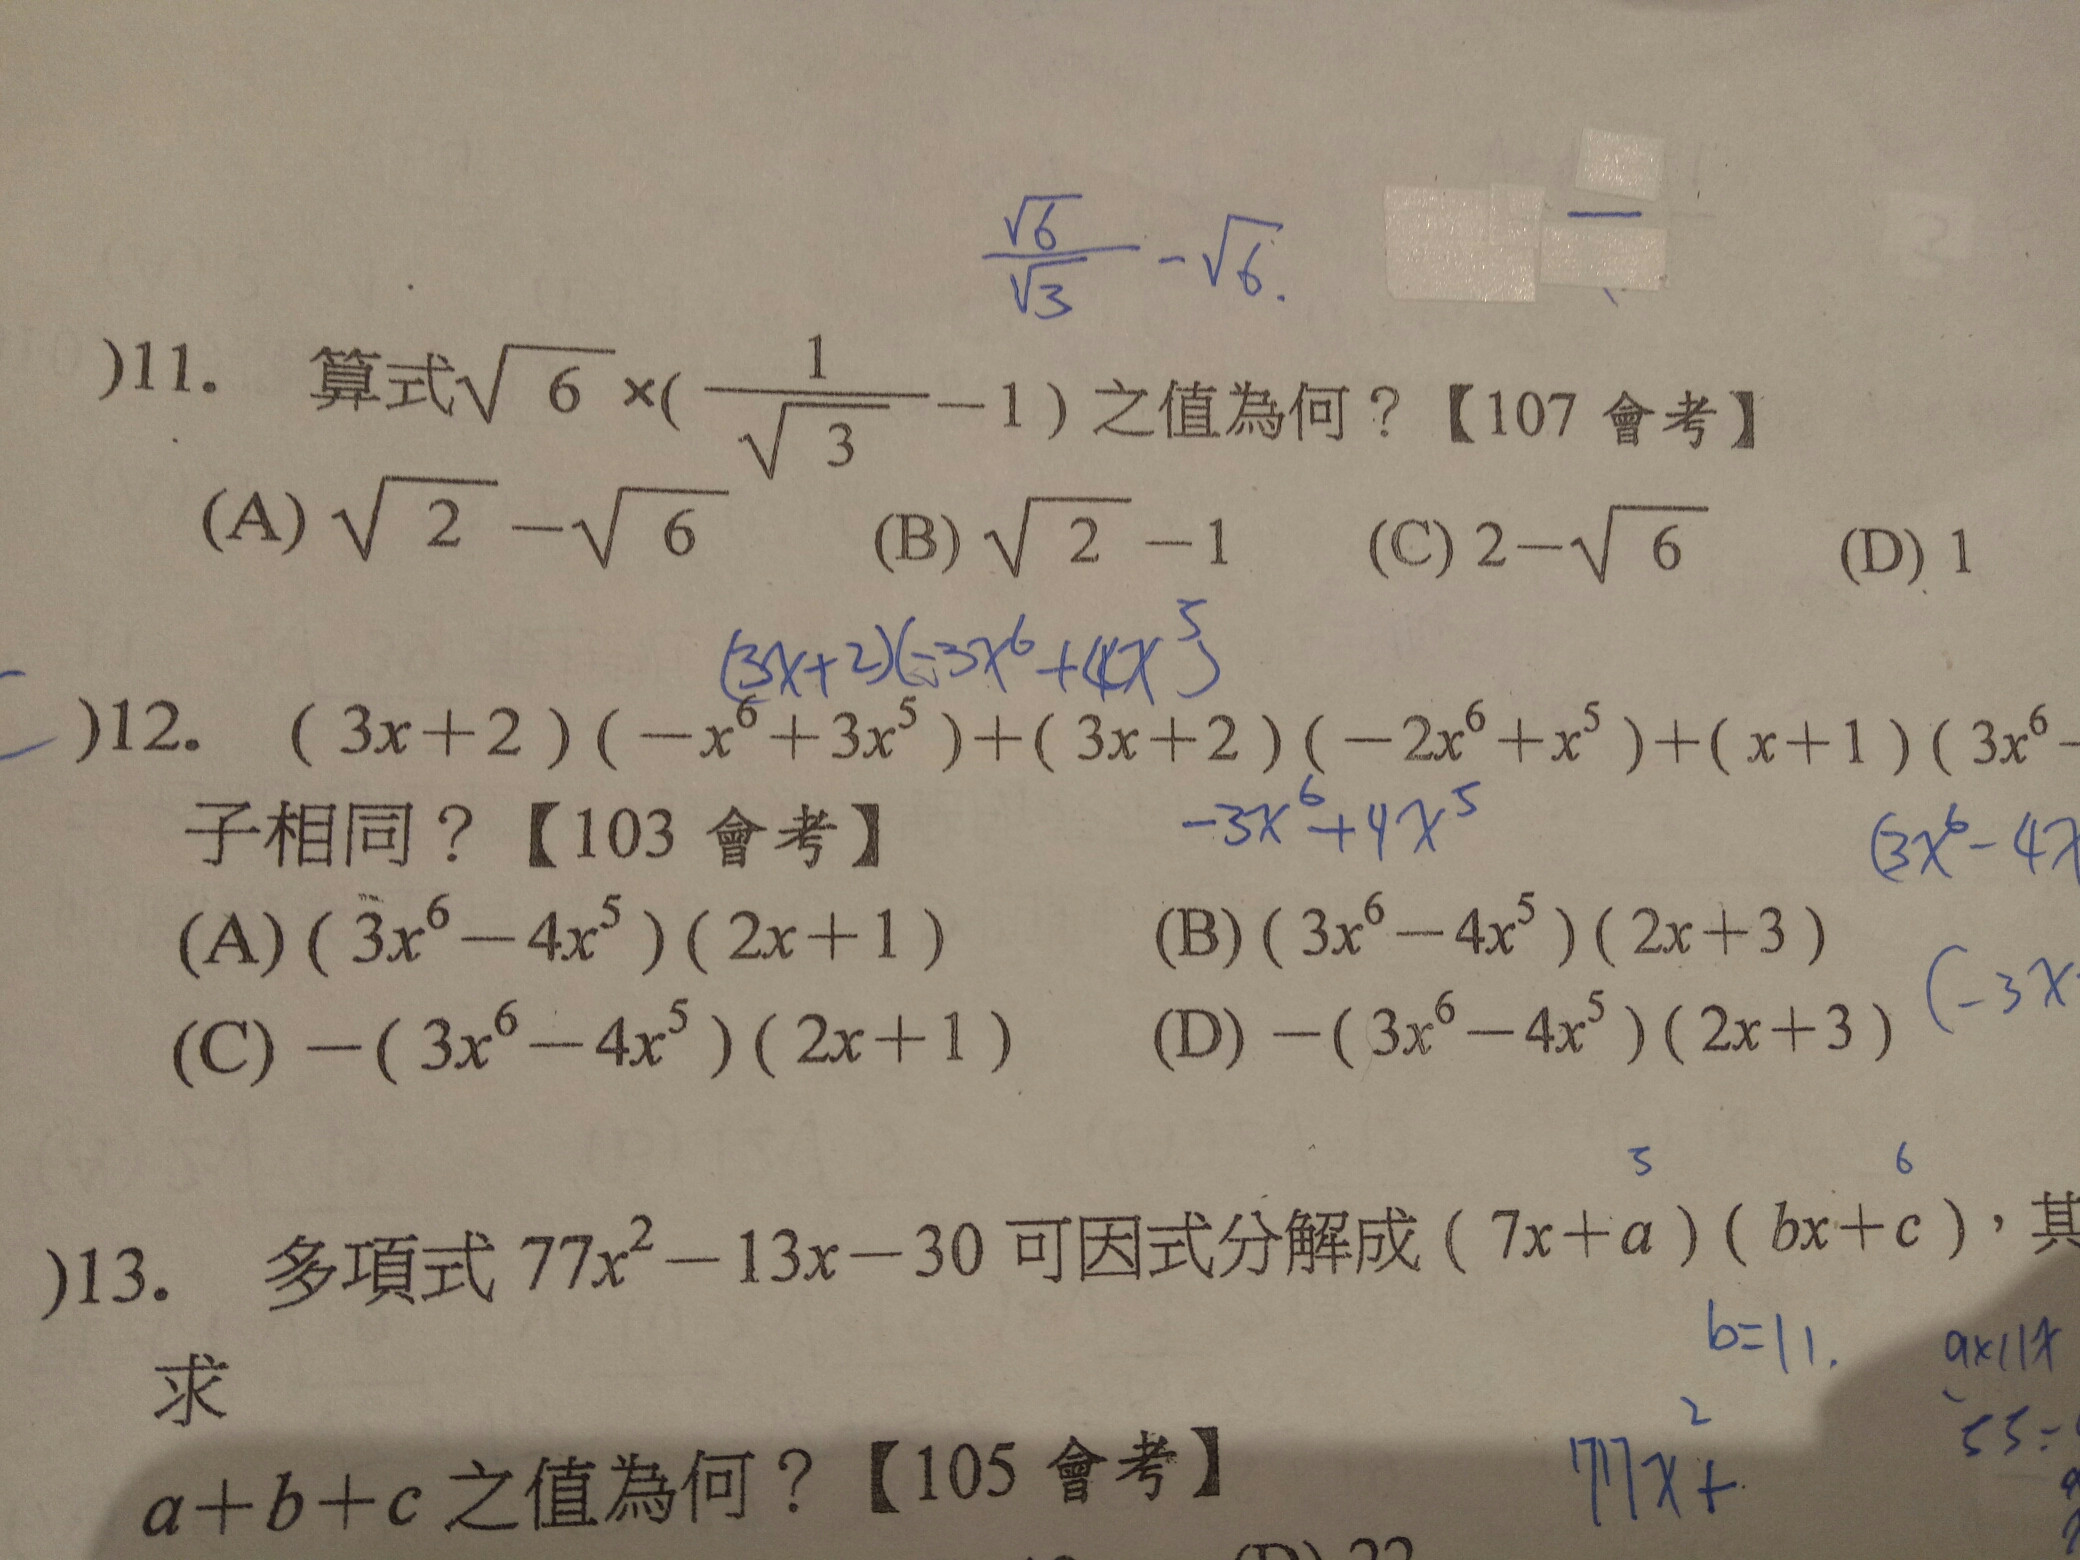 √6/√3 - √6.
)11. 算式√6×(1/√3－1)之值為何？【107 會考】
(A) √2－√6 (B) √2－1 (C) 2－√6 (D) 1
(3x+2)(-3x⁶+4x⁵)
)12. (3x＋2)(－x⁶＋3x⁵)＋(3x＋2)(－2x⁶＋x⁵)＋(x＋1)(3x⁶－
子相同？【103 會考】
-3x⁶+4x⁵ (3x⁶-4x
(A) (3x⁶－4x⁵)(2x＋1) (B) (3x⁶－4x⁵)(2x＋3)
(-3x
(C) －(3x⁶－4x⁵)(2x＋1) (D) －(3x⁶－4x⁵)(2x＋3)
5 6
)13. 多項式 77x²－13x－30 可因式分解成(7x＋a)(bx＋c)，其
b=11. ax11x
求
77x²+ 55=
a＋b＋c 之值為何？【105 會考】
(D) 22